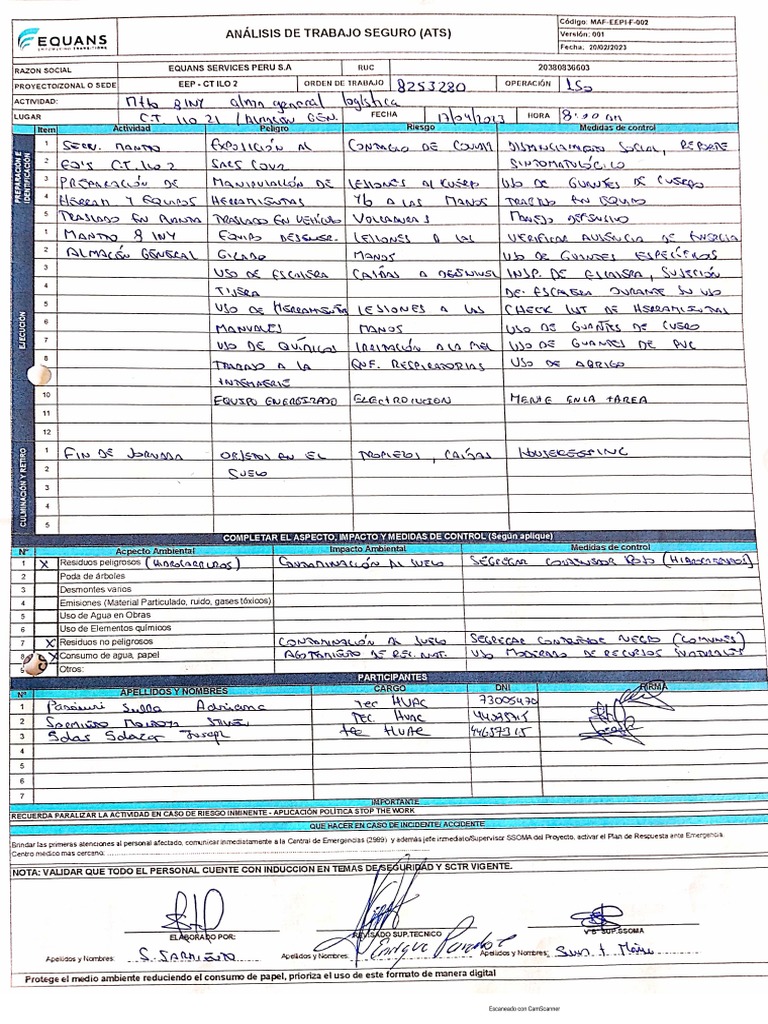 EQUANS
EMPOWERING TRANSITIONS
ANÁLISIS DE TRABAJO SEGURO (ATS)
Código: MAF-EEPI-F-002
Versión: 001
Fecha: 20/02/2023
RAZON SOCIAL EQUANS SERVICES PERU S.A RUC 20380836603
PROYECTO/ZONAL O SEDE EEP - CT ILO 2 ORDEN DE TRABAJO 8253280 OPERACIÓN 150
ACTIVIDAD: Mtto 8 INY alma general logística
LUGAR C.T. ILO 21 / Almacen GEN. FECHA 17/04/2023 HORA 8:00 am
Item Actividad Peligro Riesgo Medidas de control
PREPARACIÓN E IDENTIFICACIÓN
1 SERV. MANTTO EXPOSICIÓN AL CONTAGIO DE COVID DISTANCIAMIENTO SOCIAL, REPORTE
2 EQ'S C.T. ILO 2 SARS COV2 SINTOMATOLÓGICO
3 PREPARACIÓN DE MANIPULACIÓN DE LESIONES AL CUERPO USO DE GUANTES DE CUERO
4 HERRAM Y EQUIPOS HERRAMIENTAS Y/O A LAS MANOS TRABAJO EN EQUIPO
5 TRASLADO EN PLANTA TRASLADO EN VEHÍCULO VOLCADURAS MANEJO DEFENSIVO
EJECUCIÓN
1 MANTTO 8 INY EQUIPO DESENER. LESIONES A LAS VERIFICAR AUSENCIA DE ENERGIA
2 ALMACÉN GENERAL GIZADO MANOS USO DE GUANTES ESPECÍFICOS
3 USO DE ESCALERA CAÍDAS A DESNIVEL INSP. DE ESCALERA, SUJECIÓN
4 TIJERA DE ESCALERA DURANTE SU USO
5 USO DE HERRAMIENTAS LESIONES A LAS CHECK LIST DE HERRAMIENTAS
6 MANUALES MANOS USO DE GUANTES DE CUERO
7 USO DE QUÍMICOS IRRITACIÓN A LA PIEL USO DE GUANTES DE PVC
8 TRABAJO A LA ENF. RESPIRATORIAS USO DE ABRIGO
INTEMPERIE
10 EQUIPO ENERGIZADO ELECTROCUCION MENTE EN LA TAREA
11
12
CULMINACIÓN Y RETIRO
1 FIN DE JORNADA OBJETOS EN EL TROPIEZOS, CAÍDAS HOUSEKEEPING
2 SUELO
3
4
5
COMPLETAR EL ASPECTO, IMPACTO Y MEDIDAS DE CONTROL (Según aplique)
Nº Aspecto Ambiental Impacto Ambiental Medidas de control
1 X Residuos peligrosos (HIDROCARBUROS) CONTAMINACIÓN AL SUELO SEGREGAR CONTENEDOR ROJO (HIDROCARBUROS)
2 Poda de árboles
3 Desmontes varios
4 Emisiones (Material Particulado, ruido, gases tóxicos)
5 Uso de Agua en Obras
6 Uso de Elementos químicos
7 X Residuos no peligrosos CONTAMINACIÓN AL SUELO SEGREGAR CONTENEDOR NEGRO (COMUNES)
8 X Consumo de agua, papel AGOTAMIENTO DE REC. NAT. USO MODERADO DE RECURSOS NATURALES
9 Otros:
PARTICIPANTES
Nº APELLIDOS Y NOMBRES CARGO DNI FIRMA
1 Sulla Adriana Tec HVAC 73005470
2 Tec. Hvac
3 Salas Salazar Joseph tec HVAC 44657315
4
5
6
7
IMPORTANTE
RECUERDA PARALIZAR LA ACTIVIDAD EN CASO DE RIESGO INMINENTE - APLICACIÓN POLÍTICA STOP THE WORK
QUE HACER EN CASO DE INCIDENTE/ ACCIDENTE
Brindar las primeras atenciones al personal afectado, comunicar inmediatamente a la Central de Emergencias (2999) y además jefe inmediato/Supervisor SSOMA del Proyecto, activar el Plan de Respuesta ante Emergencia.
Centro medico mas cercano:
NOTA: VALIDAR QUE TODO EL PERSONAL CUENTE CON INDUCCION EN TEMAS DE SEGURIDAD Y SCTR VIGENTE.
ELABORADO POR: REVISADO SUP.TECNICO V°B° SUP.SSOMA
Apellidos y Nombres: S. SARMIENTO Apellidos y Nombres: Enrique Paredes Apellidos y Nombres:
Protege el medio ambiente reduciendo el consumo de papel, prioriza el uso de este formato de manera digital
Escaneado con CamScanner